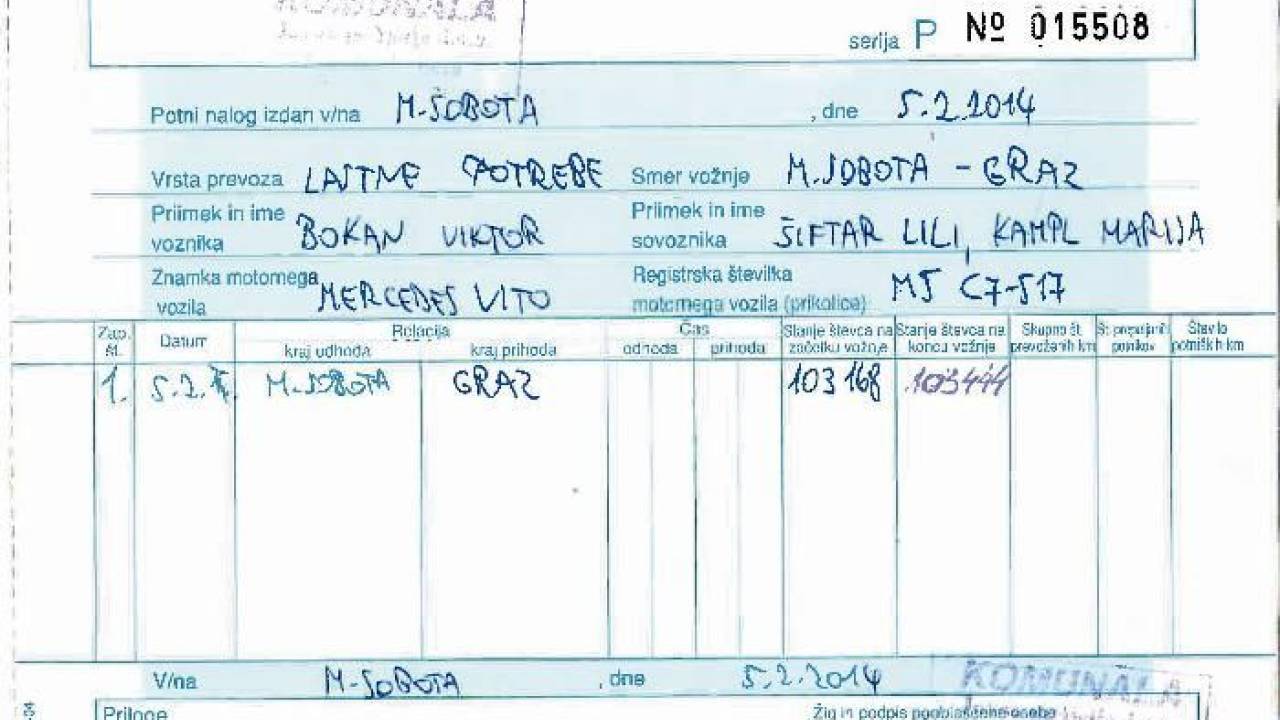 KOMUNALA
serija P Nº 015508
Potni nalog izdan v/na M-SOBOTA , dne 5.2.2014
Vrsta prevoza LASTNE POTREBE Smer vožnje M.SOBOTA - GRAZ
Priimek in ime voznika BOKAN VIKTOR Priimek in ime sovoznika ŠIFTAR LILI, KAMPL MARIJA
Znamka motornega vozila MERCEDES VITO Registrska številka motornega vozila (prikolice) MS C7-517
Zap. št. Datum Relacija Čas Stanje števca na začetku vožnje Stanje števca na koncu vožnje Skupno št. prevoženih km Št. prepeljanih potnikov Število potniških km
kraj odhoda kraj prihoda odhoda prihoda
1. 5.2. M-SOBOTA GRAZ 103168 103444
V/na M-SOBOTA , dne 5.2.2014
KOMUNALA
Priloge Žig in podpis pooblaščene osebe